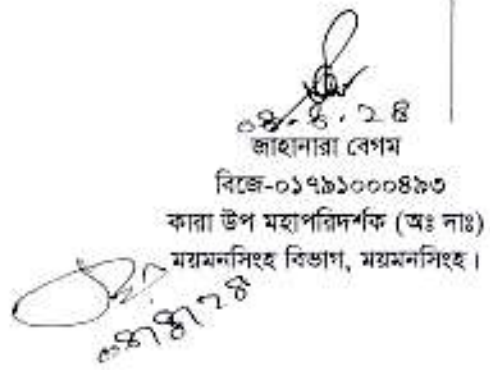 ০৪.৪.২৪
জাহানারা বেগম
বিজে-০১৭৯১০০০৪৯৩
কারা উপ মহাপরিদর্শক (অঃ দাঃ)
ময়মনসিংহ বিভাগ, ময়মনসিংহ।
০৪/৪/২৪